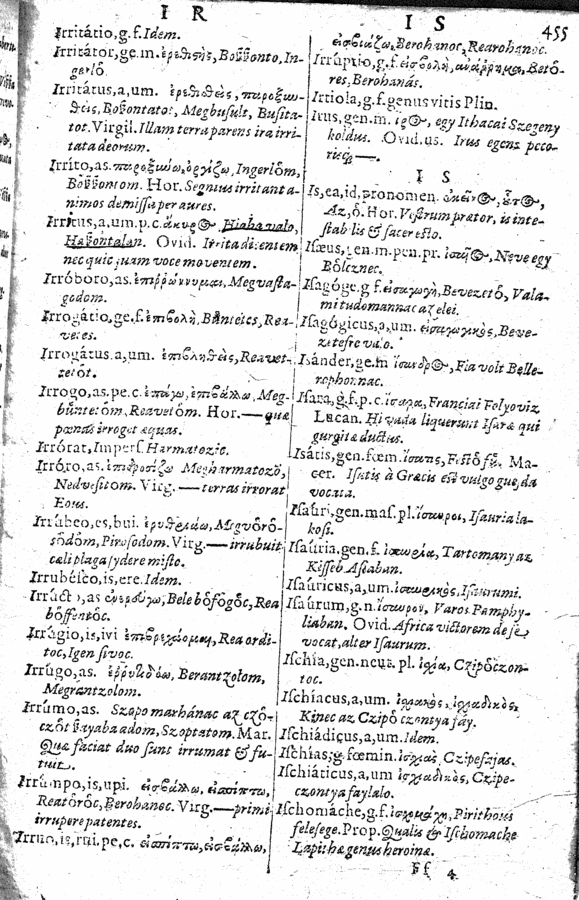 I R
I S
455
Irritátio,g.f. Idem.
Irritátor,ge.m. ἐρεθιςὴς, Boßßonto, In-
gerlő.
Irritátus,a,um. ἐρεθιθεὶς,
θεὶς, Boßßontatot, Megbusult, Busita-
tot. Virgil. Illam terra parens ira irri-
tata deorum.
Irrito,as. παροξύνω,ὀργίζω, Ingerlőm,
Boßßontom. Hor. Segnius irritant a-
nimos demissa per aures.
Irritus,a,um.p.c. ἄκυρος, Hiaba valo,
Haßontalan. Ovid. Irrita dicentem
nec quicquam voce moventem.
Irróboro,as. ἐπιῤῥώννυμαι, Megvasta-
godom.
Irrogátio,ge.f. ἐπιβολὴ, Bűnteics, Rea-
vetes.
Irrogátus,a,um. ἐπιβληθεὶς, Reavet-
tetőt.
Irrogo,as.pe.c. ἐπάγω, ἐπιβάλλω, Meg-
bűntetőm, Reavetőm. Hor. — quæ
pœnas irroget æquas.
Irrórat, Impers. Harmatozic.
Irróro,as. ἐπιδροσίζω Megharmatoző,
Nedvesitom. Virg. — terras irrorat
Eous.
Irrúbeo,es,bui. ἐρυθριάω, Megvőrő-
sődőm, Pirosodom. Virg. — irrubuit
cæli plaga sydere misto.
Irrubésco,is,ere. Idem.
Irrúcto,as Bele bőfőgőc, Rea
bőffentőc.
Irrúgio,is,ivi Rea ordi-
toc, Igen sivoc.
Irrúgo,as. Berantzolom,
Megrantzolom.
Irrúmo,as. Szopo marhánac az cző-
czőt ßayaba adom, Szoptatom. Mar.
Quæ faciat duo sunt irrumat & fu-
tuit.
Irrúmpo,is,upi. εἰσβάλλω, εἰσπίπτω,
Reatőrőc, Berohanec. Virg. — primi
irrupere patentes.
Irruo,is,rui.pe,c. εἰσπίπτω, εἰσβάλλω,
εἰσβιάζω, Berohanoc, Rearohanoc.
Irrúptio,g.f. εἰσβολὴ, Bető-
res, Berohanás.
Irtiola,g.f. genus vitis Plin.
Irus,gen.m. ἶρος, egy Ithacai Szegeny
koldus. Ovid. us. Irus egens peco-
risq; —.
I S
Is,ea,id,pronomen. ἐκεῖνος, οὗτος,
Az, ő. Hor. Vestrum prætor, is inte-
stabilis & sacer esto.
Isæus,gen.m.pen.pr. ἰσαῖος, Neve egy
Bőlcznec.
Isagóge.g f. εἰσαγωγὴ, Bevezető, Vala-
mi tudomannac az elei.
Isagógicus,a,um. εἰσαγωγικὸς, Beve-
zetesre valo.
Isánder,ge.m ἴσανδρος, Fia volt Belle-
rophonnac.
Isara,g.f.p.c. ἴσαρα, Franciai Folyoviz
Lucan. Hi vada liquerunt Isaræ qui
gurgite ductus.
Isátis,gen.fœm. ἴσατις, Festő fű. Ma-
cer. Isatis à Græcis est vulgo gueda
vocata.
Isauri,gen.mas.pl. ἴσαυροι, Isauria la-
kosi.
Isáuria,gen.f. ἰσαυρία, Tartomany az
Kisseb Asiaban.
Isauricus,a,um. ἰσαυρικὸς, Isaurumi.
Isaurum,g.n. ἴσαυρον, Varos Pamphy-
liaban. Ovid. Africa victorem de se
vocat, alter Isaurum.
Ischia,gen.neut. pl. ἰσχία, Czipőczon-
toc.
Ischíacus,a,um. ἰσχιακὸς, ἰσχιαδικὸς,
Kinec az Czipő czontya fay.
Ischiádicus,a,um. Idem.
Ischías,g.fœmin. ἰσχιὰς, Czipefajas.
Ischiáticus,a,um ἰσχιαδικὸς, Czipe-
czontya faylalo.
Ischomáche,g.f. ἰσχομάχη, Pirithous
felesege. Prop. Qualis & Ischomache
Lapithæ genus heroinæ.
Ff 4